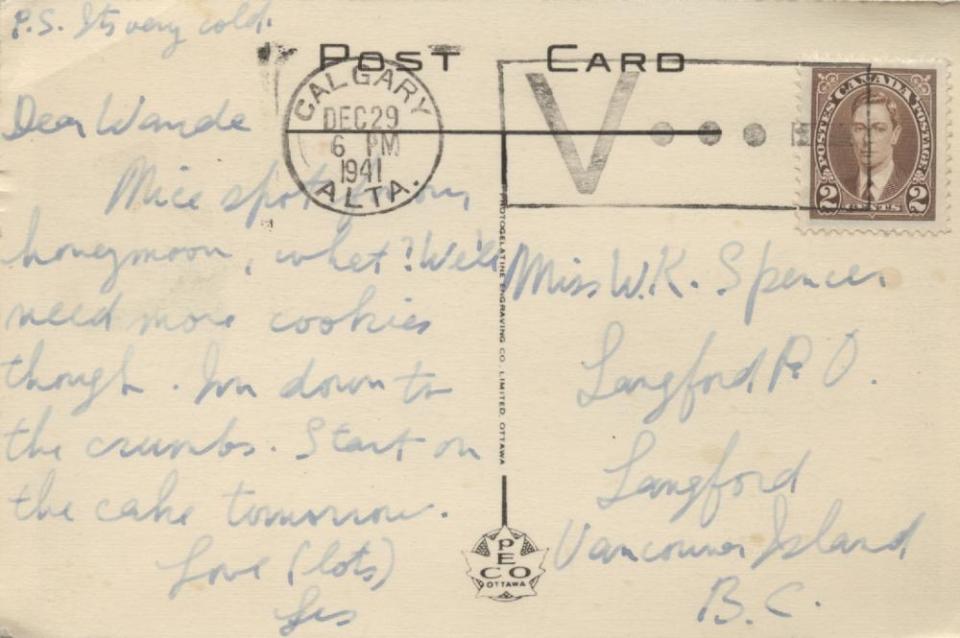 P.S. Its very cold.
POST CARD
CALGARY
DEC 29
6 PM
1941
ALTA.
V
POSTES CANADA POSTAGE
2 CENTS 2
Dear Wande
Nice spot for our
honeymoon, what? We'll
need more cookies
though. I'm down to
the crumbs. Start on
the cake tomorrow.
Love (lots)
Les
PHOTOGELATINE ENGRAVING CO. LIMITED, OTTAWA
PECO
OTTAWA
Miss W.K. Spencer
Langford P.O.
Langford
Vancouver Island
B.C.